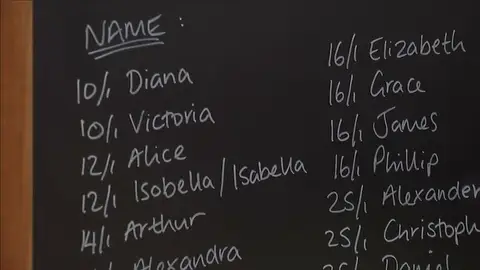 NAME :
10/1 Diana
10/1 Victoria
12/1 Alice
12/1 Isobella/Isabella
14/1 Arthur
Alexandra
16/1 Elizabeth
16/1 Grace
16/1 James
16/1 Phillip
25/1 Alexander
25/1 Christoph
25/1 Daniel